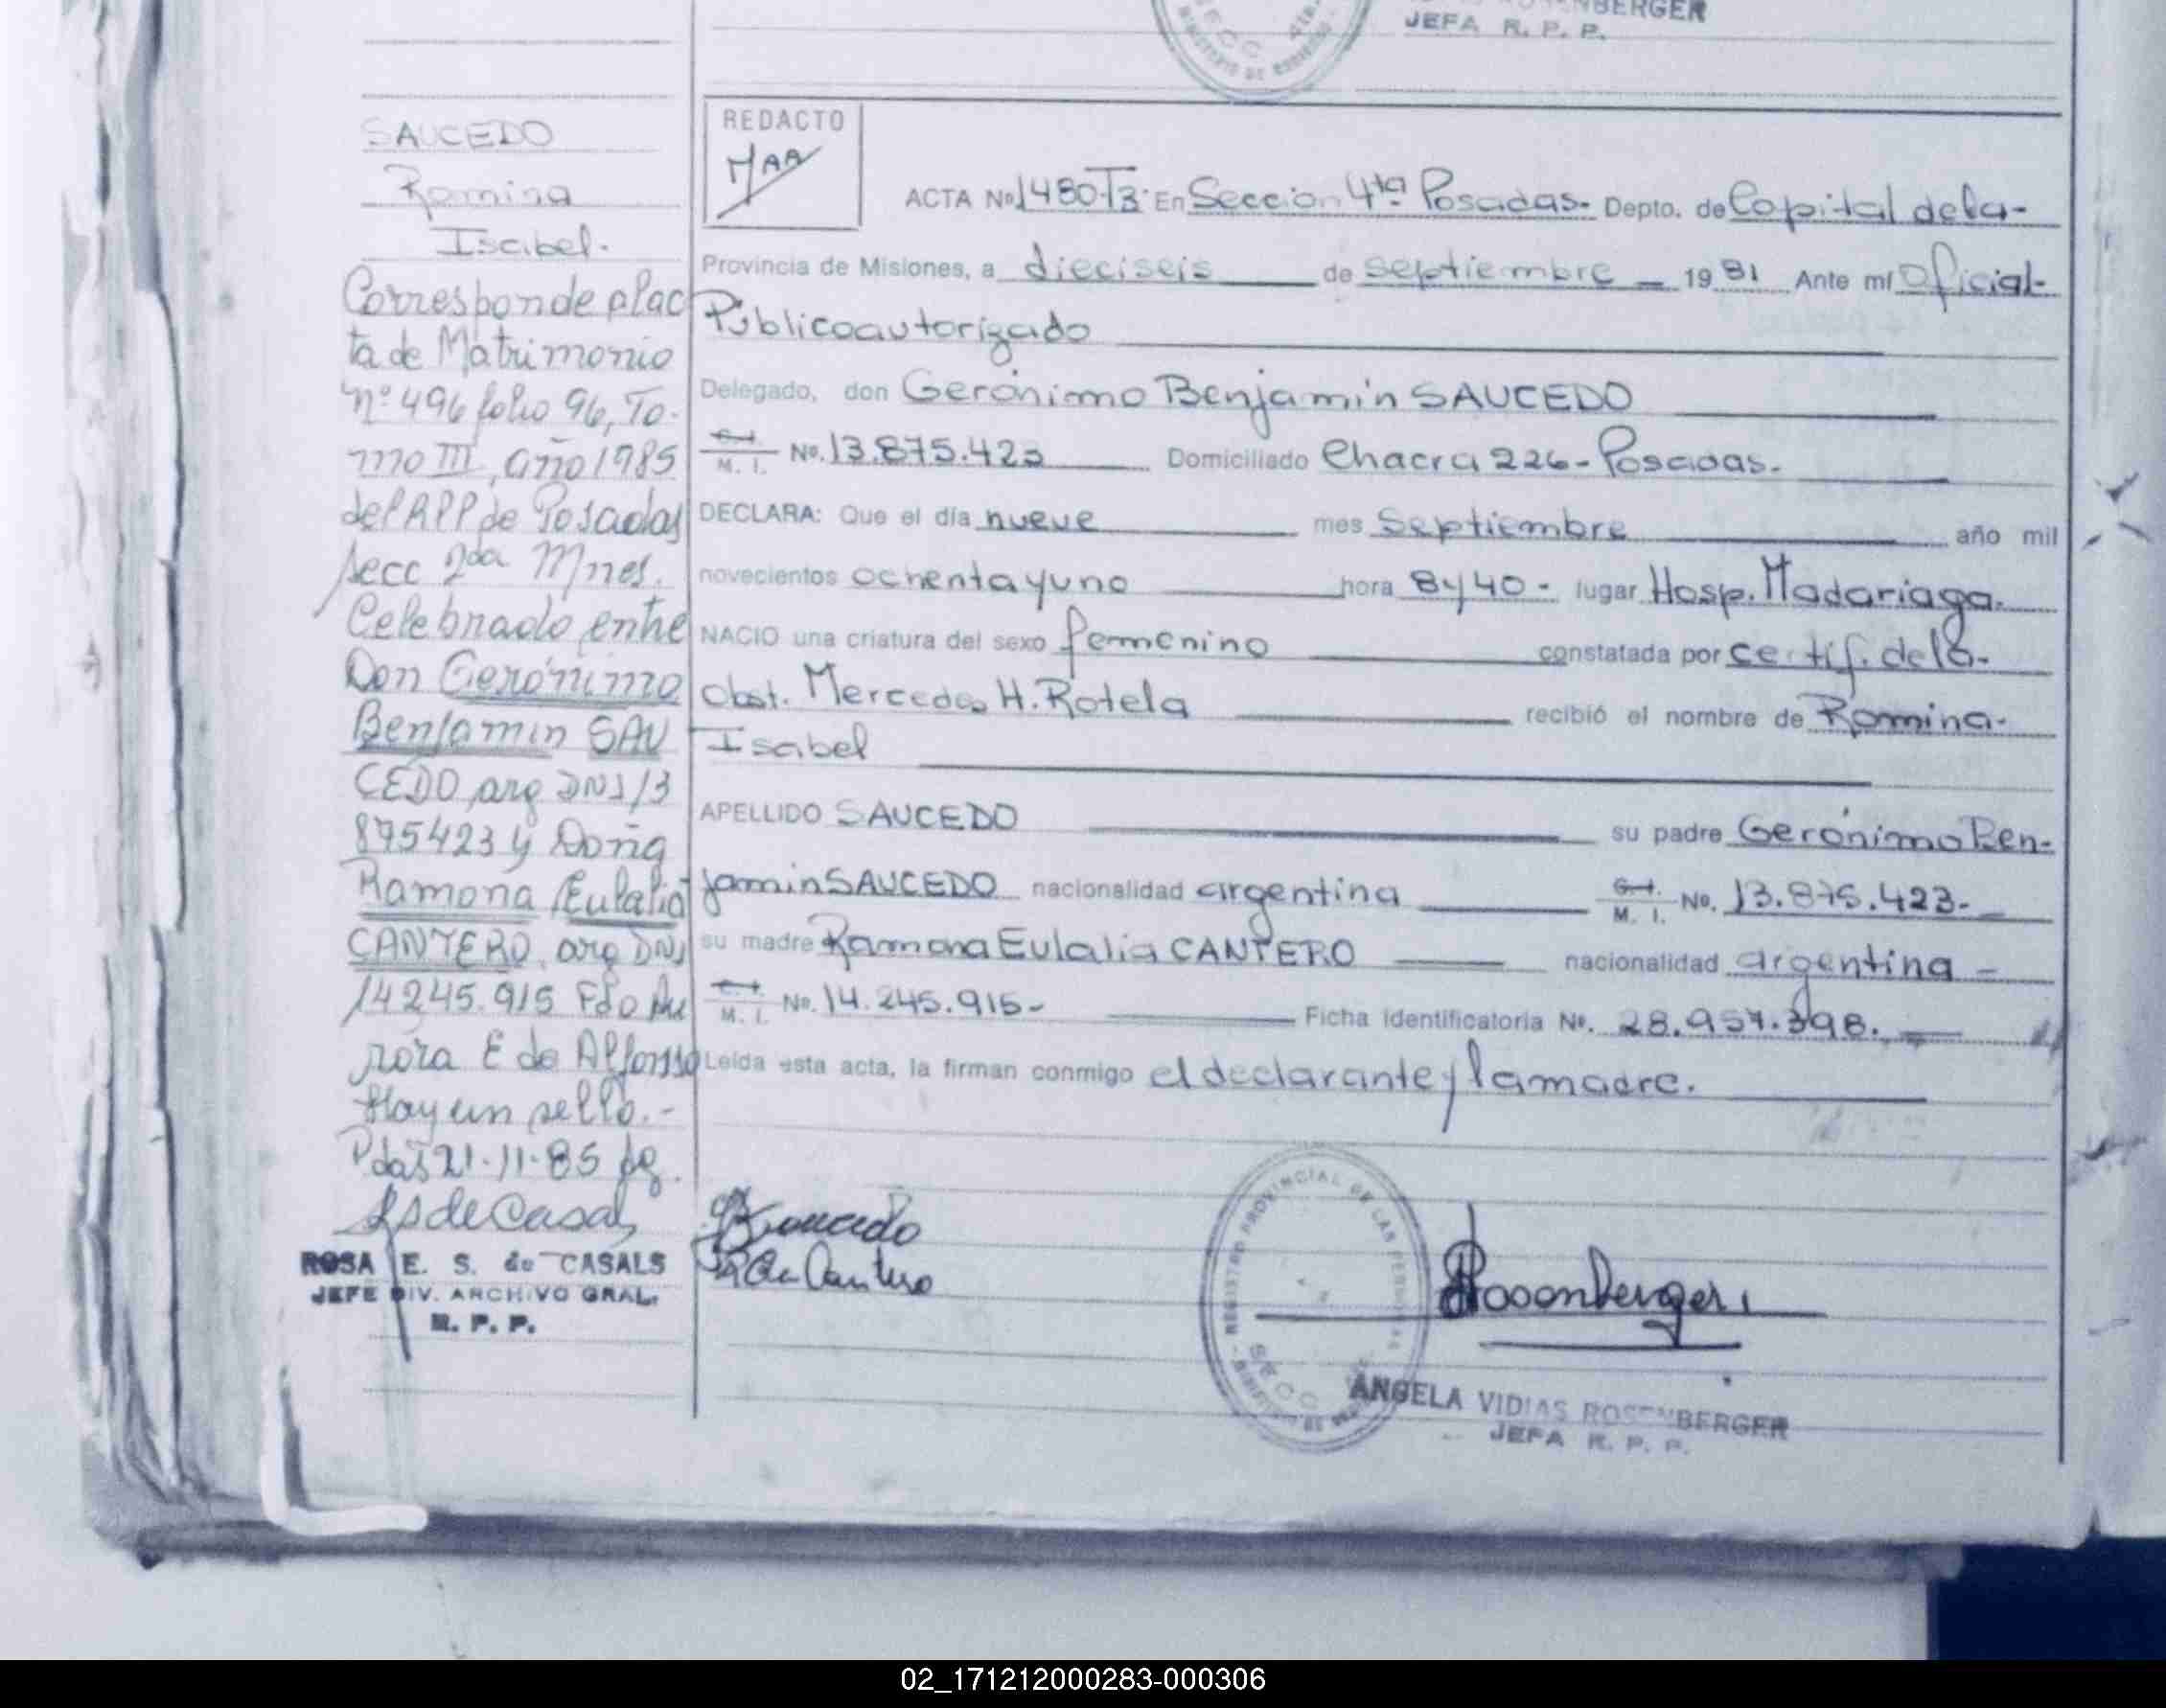 BERGER
JEFA R. P. P.
SAUCEDO
Romina
Isabel.
Corresponde al ac
ta de Matrimonio
nº 496 folio 96, To-
mo III, año 1985
del RPP de Posadas
secc 2da Mnes.
Celebrado entre
Don Gerónimo
Benjamin SAU
CEDO arg DNI 13
875423 y Doña
Ramona Eulalia
CANTERO, arg DNI
14245.915 Fdo Au
rora E de Alfonso
Hay un sello.-
Pdas 21-11-85
ROSA E. S. de CASALS
JEFE DIV. ARCHIVO GRAL.
R. P. P.
REDACTO
MAA
ACTA Nº 1480-T3- En Sección 4ta Posadas- Depto. de Capital de la-
Provincia de Misiones, a dieciseis de septiembre 19 81 Ante mí Oficial-
Publico autorizado
Delegado, don Gerónimo Benjamín SAUCEDO
C. I. M. I. Nº. 13.875.423 Domiciliado Chacra 226- Posadas.
DECLARA: Que el día nueve mes Septiembre año mil
novecientos ochenta y uno hora 8 y 40 - lugar Hosp. Madariaga.
NACIO una criatura del sexo femenino constatada por certif. de la-
Obst. Mercedes H. Rotela recibió el nombre de Romina-
Isabel
APELLIDO SAUCEDO su padre Gerónimo Ben-
jamin SAUCEDO nacionalidad argentina C. I. M. I. Nº. 13.875.423-
su madre Ramona Eulalia CANTERO nacionalidad argentina -
C. I. M. I. Nº. 14.245.915- Ficha identificatoria Nº. 28.957.398.
Leída esta acta, la firman conmigo el declarante y la madre.
REGISTRO PROVINCIAL DE LAS PERSONAS
Rosenberger
ANGELA VIDIAS ROSENBERGER
JEFA R. P. P.
02_171212000283-000306